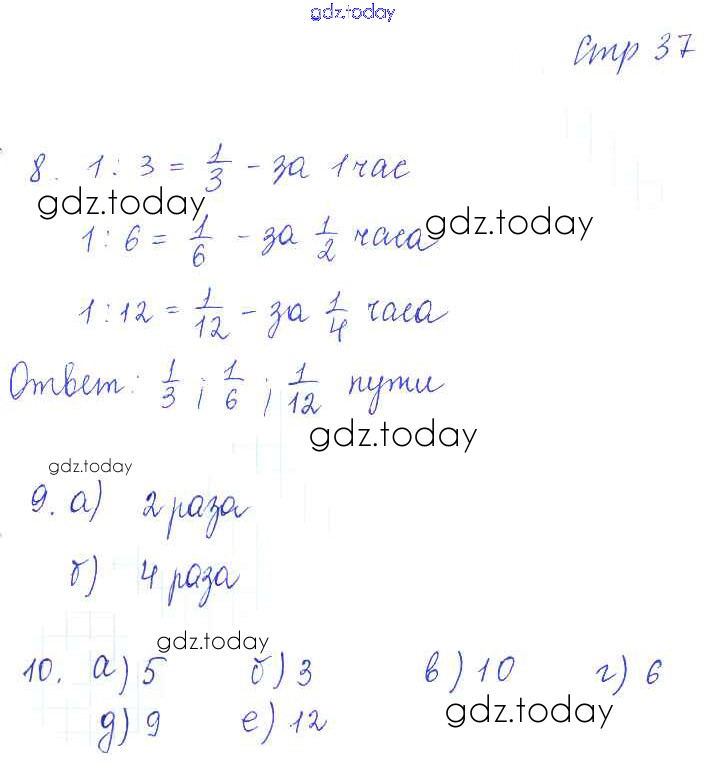 gdz.today
Стр 37
8. 1 : 3 = 1/3 - за 1 час
gdz.today
gdz.today
1 : 6 = 1/6 - за 1/2 часа
1 : 12 = 1/12 - за 1/4 часа
Ответ: 1/3 ; 1/6 ; 1/12 пути
gdz.today
gdz.today
9. а) 2 раза
б) 4 раза
gdz.today
10. а) 5 б) 3 в) 10 г) 6
д) 9 е) 12
gdz.today